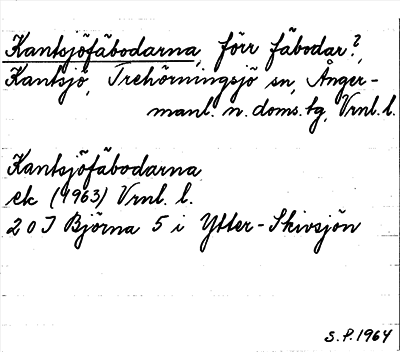 Kantsjöfäbodarna, förr fäbodar?,
Kantsjö, Trehörningsjö sn, Ånger-
manl. n. doms. tg, Vrnl. l.
Kantsjöfäbodarna
ek (1963) Vrnl. l.
20J Björna 5 i Ytter-Skivsjön
S.P. 1964